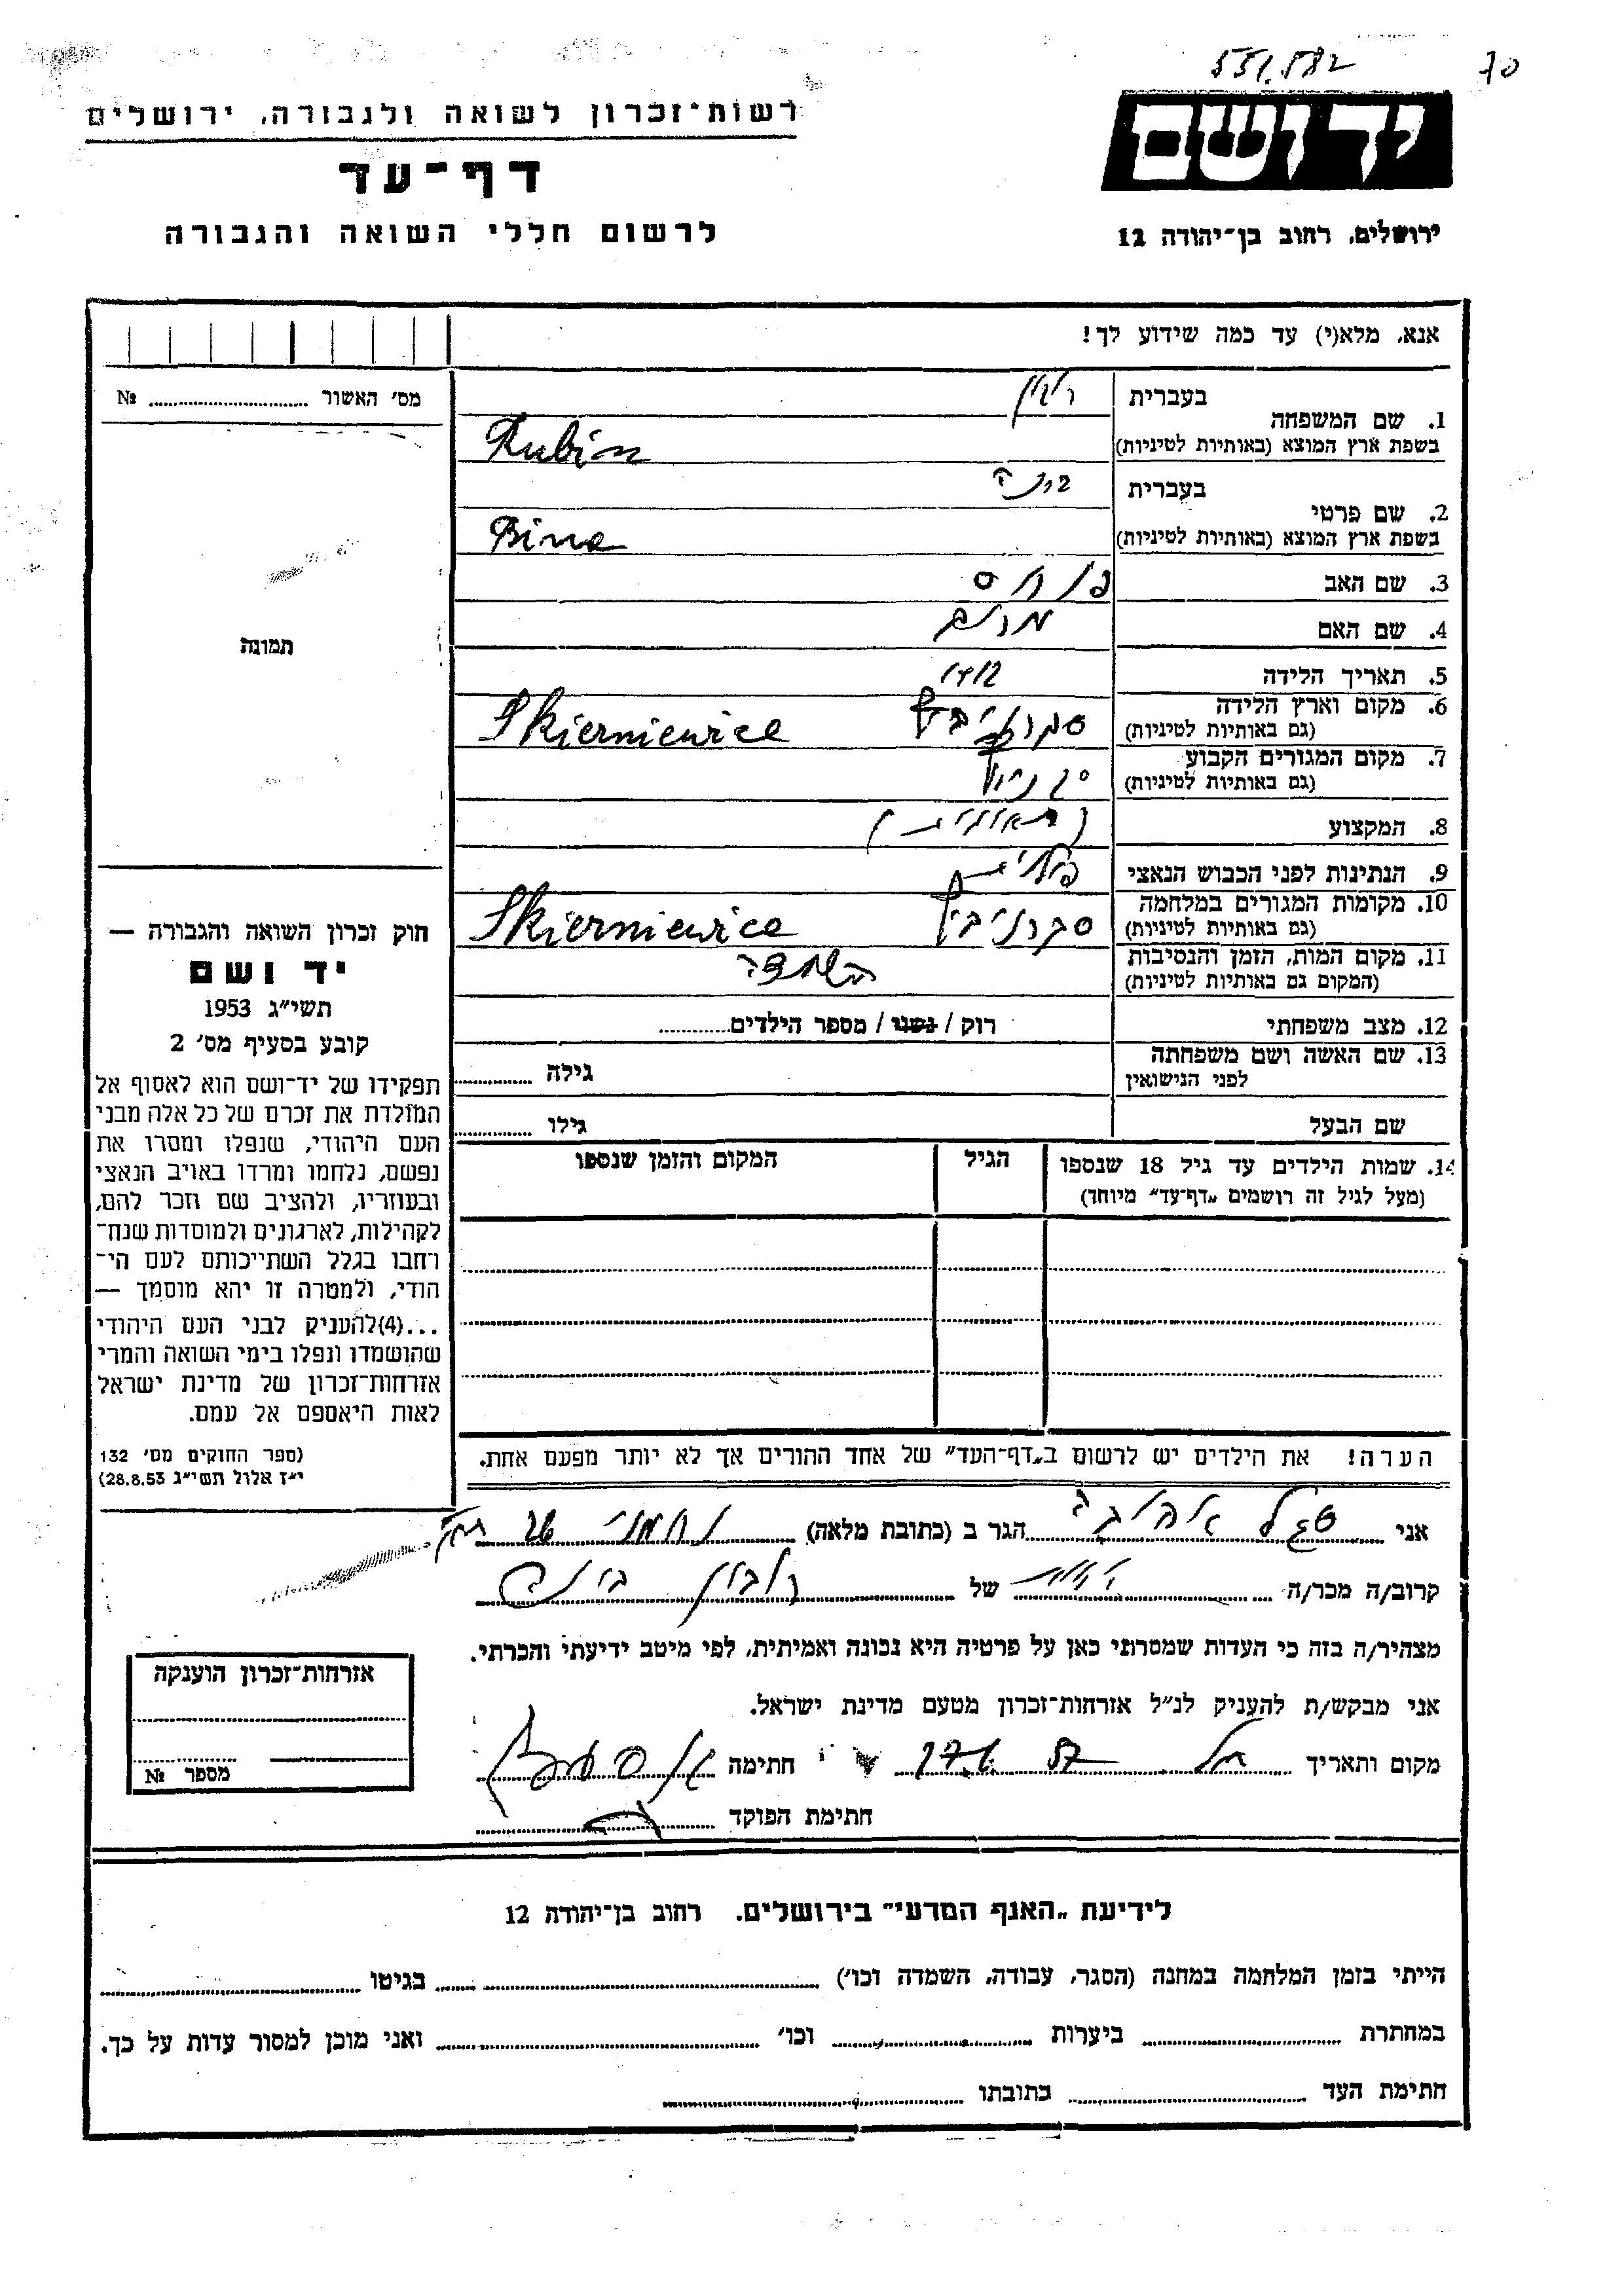 551.582 70
ידושם
ירושלים, רחוב בן־יהודה 12
רשות־זכרון לשואה ולגבורה, ירושלים
דף־עד
לרשום חללי השואה והגבורה
אנא, מלא(י) עד כמה שידוע לך!
מס׳ האשור .......... №
תמונה
1. שם המשפחה
בעברית רובין
בשפת ארץ המוצא (באותיות לטיניות) Rubin
2. שם פרטי
בעברית בינה
בשפת ארץ המוצא (באותיות לטיניות) Bina
3. שם האב פנחס
4. שם האם מרים
5. תאריך הלידה
6. מקום וארץ הלידה
(גם באותיות לטיניות) Skierniewice
7. מקום המגורים הקבוע
(גם באותיות לטיניות)
8. המקצוע
9. הנתינות לפני הכבוש הנאצי פולנית
10. מקומות המגורים במלחמה
(גם באותיות לטיניות) סקרניביץ Skierniewice
11. מקום המות, הזמן והנסיבות
(המקום גם באותיות לטיניות) השמדה
12. מצב משפחתי רוק / נשוי / מספר הילדים..........
13. שם האשה ושם משפחתה
לפני הנישואין גילה ..........
שם הבעל גילו ..........
14. שמות הילדים עד גיל 18 שנספו הגיל המקום והזמן שנספו
(מעל לגיל זה רושמים „דף־עד״ מיוחד)
הערה! את הילדים יש לרשום ב„דף־העד״ של אחד ההורים אך לא יותר מפעם אחת.
חוק זכרון השואה והגבורה —
יד ושם
תשי״ג 1953
קובע בסעיף מס׳ 2
תפקידו של יד־ושם הוא לאסוף אל
המולדת את זכרם של כל אלה מבני
העם היהודי, שנפלו ומסרו את
נפשם, נלחמו ומרדו באויב הנאצי
ובעוזריו, ולהציב שם וזכר להם,
לקהילות, לארגונים ולמוסדות שנח־
רבו בגלל השתייכותם לעם הי־
הודי, ולמטרה זו יהא מוסמך —
...(4)להעניק לבני העם היהודי
שהושמדו ונפלו בימי השואה והמרי
אזרחות־זכרון של מדינת ישראל
לאות היאספם אל עמם.
(ספר החוקים מס׳ 132
י״ז אלול תשי״ג 28.8.53)
אני סגל הגר ב (כתובת מלאה) נחמני
קרוב/ה מכר/ה של רובין בינה
מצהיר/ה בזה כי העדות שמסרתי כאן על פרטיה היא נכונה ואמיתית, לפי מיטב ידיעתי והכרתי.
אני מבקש/ת להעניק לנ״ל אזרחות־זכרון מטעם מדינת ישראל.
מקום ותאריך חתימה
חתימת הפוקד
אזרחות־זכרון הוענקה
מספר №
לידיעת „האגף המדעי״ בירושלים. רחוב בן־יהודה 12
הייתי בזמן המלחמה במחנה (הסגר, עבודה, השמדה וכו׳) בגיטו
במחתרת ביערות וכו׳ ואני מוכן למסור עדות על כך.
חתימת העד כתובתו